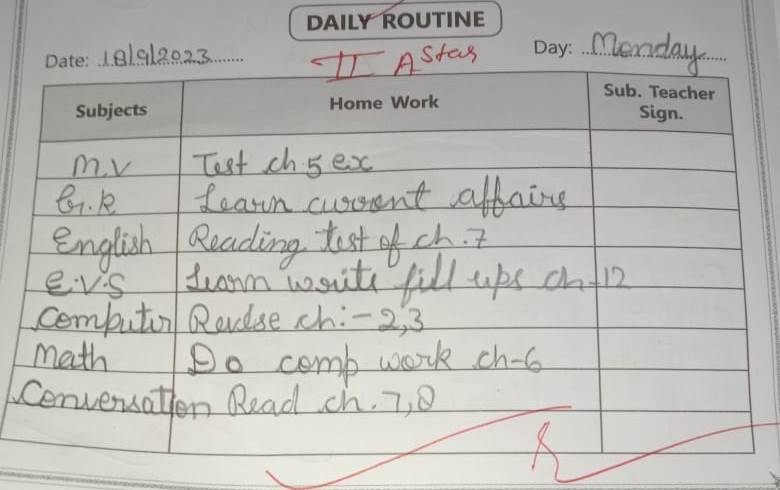 DAILY ROUTINE
Date: 18/9/2023 Day: Monday
II A Star
Subjects Home Work Sub. Teacher Sign.
M.V Test ch. 5 ex
G.K Learn current affairs
English Reading test of ch. 7
E.V.S Learn write fill ups ch-12
Computer Revise ch:- 2,3
Math Do comp work ch-6
Conversation Read ch. 7,8